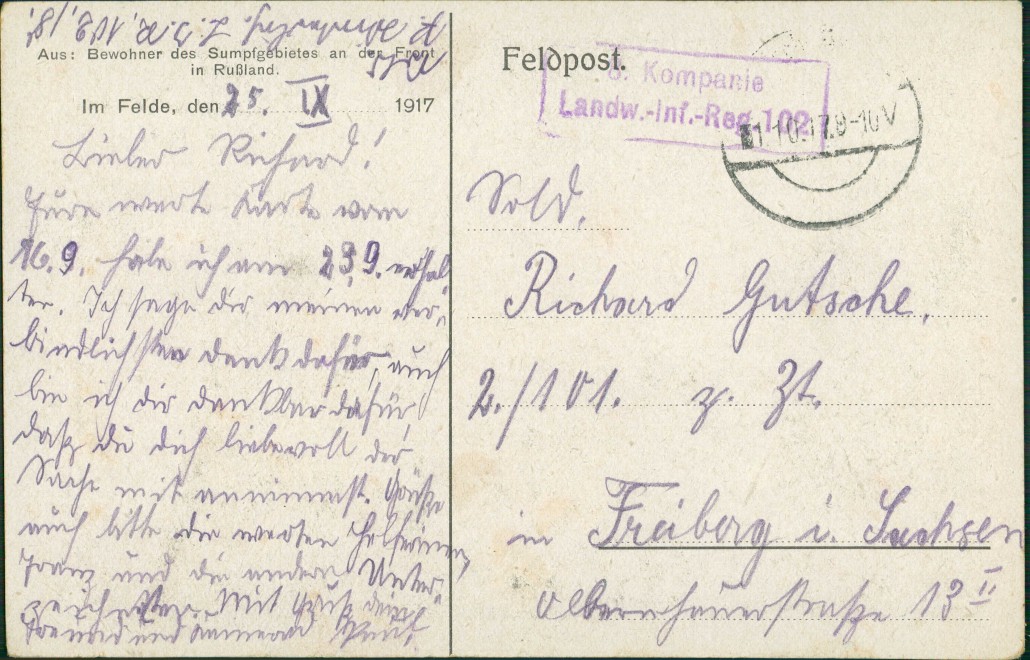 Aus: Bewohner des Sumpfgebietes an der Front
in Rußland.
Im Felde, den 25. IX 1917
Lieber Richard!
Eure werte Karte vom
16.9. habe ich am 23.9. erhal-
ten. Ich sage dir meinen ver-
bindlichsten Dank dafür, auch
bin ich dir dankbar dafür,
daß du dich liebevoll der
Sache mit annimmst. Grüße
auch bitte die werten Helferinnen,
Franz und die andern Unter-
zeichneten. Mit Gruß dein
Freund und Kamerad
L.I.R. 102, 8.
Feldpost.
8. Kompanie
Landw.-Inf.-Reg. 102
1.10.17.9-10V
Sold.
Richard Gutsche.
2./101. z. Zt.
in Freiberg i. Sachsen
Olbernhauerstraße 13 II